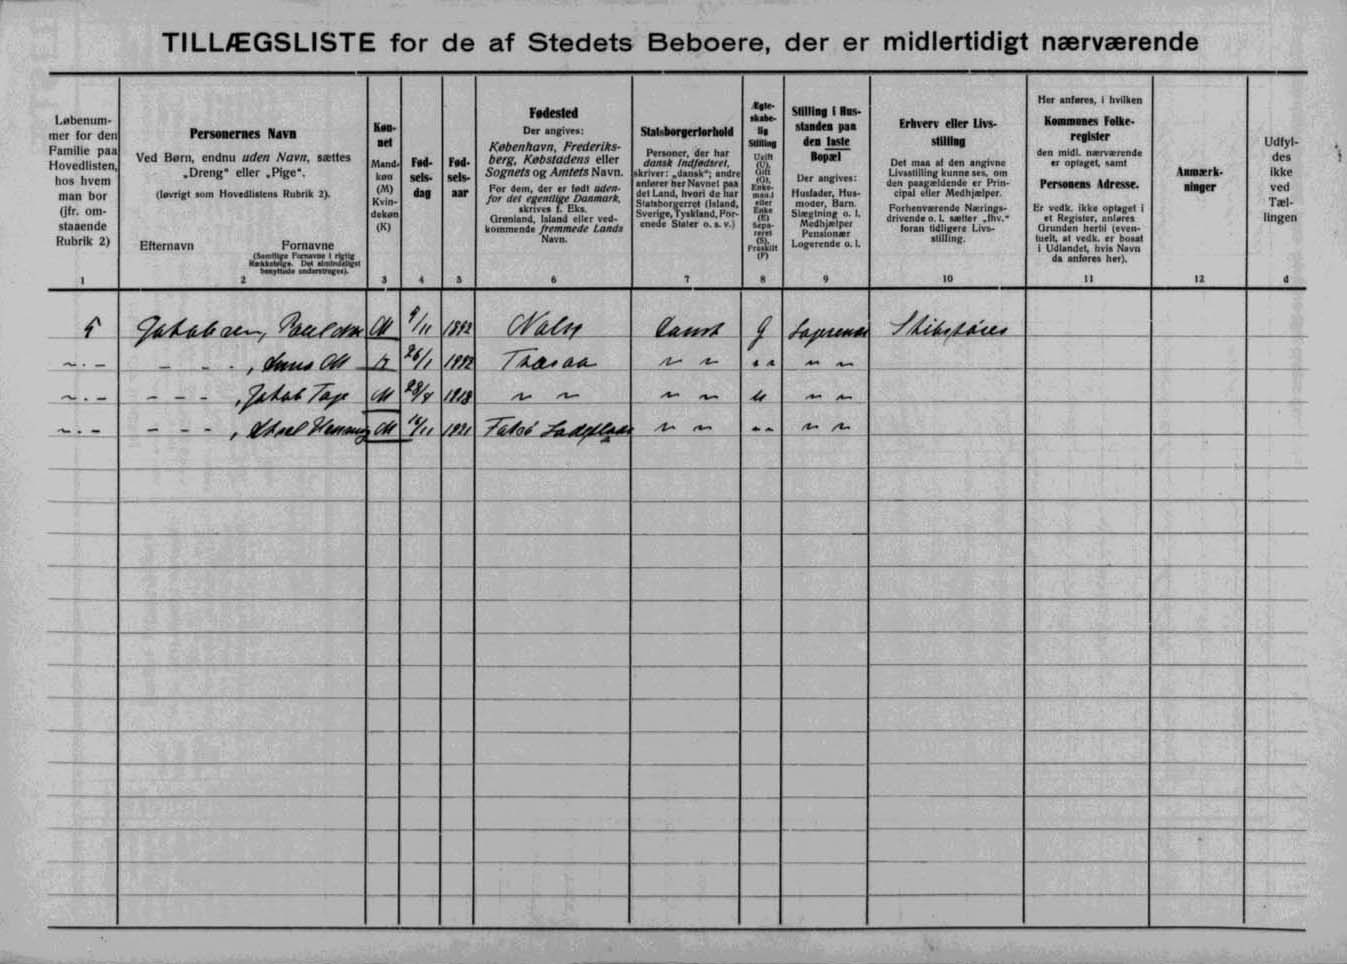 TILLÆGSLISTE for de af Stedets Beboere, der er midlertidigt nærværende
Løbenum-
mer for den
Familie paa
Hovedlisten,
hos hvem
man bor
(jfr. om-
staaende
Rubrik 2)
1
Personernes Navn
Ved Børn, endnu uden Navn, sættes
„Dreng“ eller „Pige“.
(Iøvrigt som Hovedlistens Rubrik 2).
Efternavn Fornavne
(Samtlige Fornavne i rigtig
Rækkefølge. Det almindeligst
benyttede understreges).
2
Køn-
net
Mand-
køn
(M)
Kvin-
dekøn
(K)
3
Fød-
sels-
dag
4
Fød-
sels-
aar
5
Fødested
Der angives:
København, Frederiks-
berg, Købstadens eller
Sognets og Amtets Navn.
For dem, der er født uden-
for det egentlige Danmark,
skrives f. Eks.
Grønland, Island eller ved-
kommende fremmede Lands
Navn.
6
Statsborgerforhold
Personer, der har
dansk Indfødsret,
skriver: „dansk“; andre
anfører her Navnet paa
det Land, hvori de har
Statsborgerret (Island,
Sverige, Tyskland, For-
enede Stater o. s. v.)
7
Ægte-
skabe-
lig
Stilling
Ugift
(U),
Gift
(G),
Enke-
mand
eller
Enke
(E)
Sepa-
reret
(S),
Fraskilt
(F)
8
Stilling i Hus-
standen paa
den faste
Bopæl
Der angives:
Husfader, Hus-
moder, Barn.
Slægtning o. l.
Medhjælper
Pensionær
Logerende o. l.
9
Erhverv eller Livs-
stilling
Det maa af den angivne
Livsstilling kunne ses, om
den paagældende er Prin-
cipal eller Medhjælper.
Forhenværende Nærings-
drivende o. l. sætter „fhv.“
foran tidligere Livs-
stilling.
10
Her anføres, i hvilken
Kommunes Folke-
register
den midl. nærværende
er optaget, samt
Personens Adresse.
Er vedk. ikke optaget i
et Register, anføres
Grunden hertil (even-
tuelt, at vedk. er bosat
i Udlandet, hvis Navn
da anføres her).
11
Anmærk-
ninger
12
Udfyl-
des
ikke
ved
Tæl-
lingen
d
5 Jakobsen, Poul M 9/11 1892 Dansk G Skibsfører
~ . ~ - - - , K 26/1 1892 ~ ~ ~ ~
~ . ~ - - - , Jakob M 28/4 1918 ~ ~ ~ ~ ~ ~
~ . ~ - - - , Henning M /11 1921 Ladeplads ~ ~ ~ ~